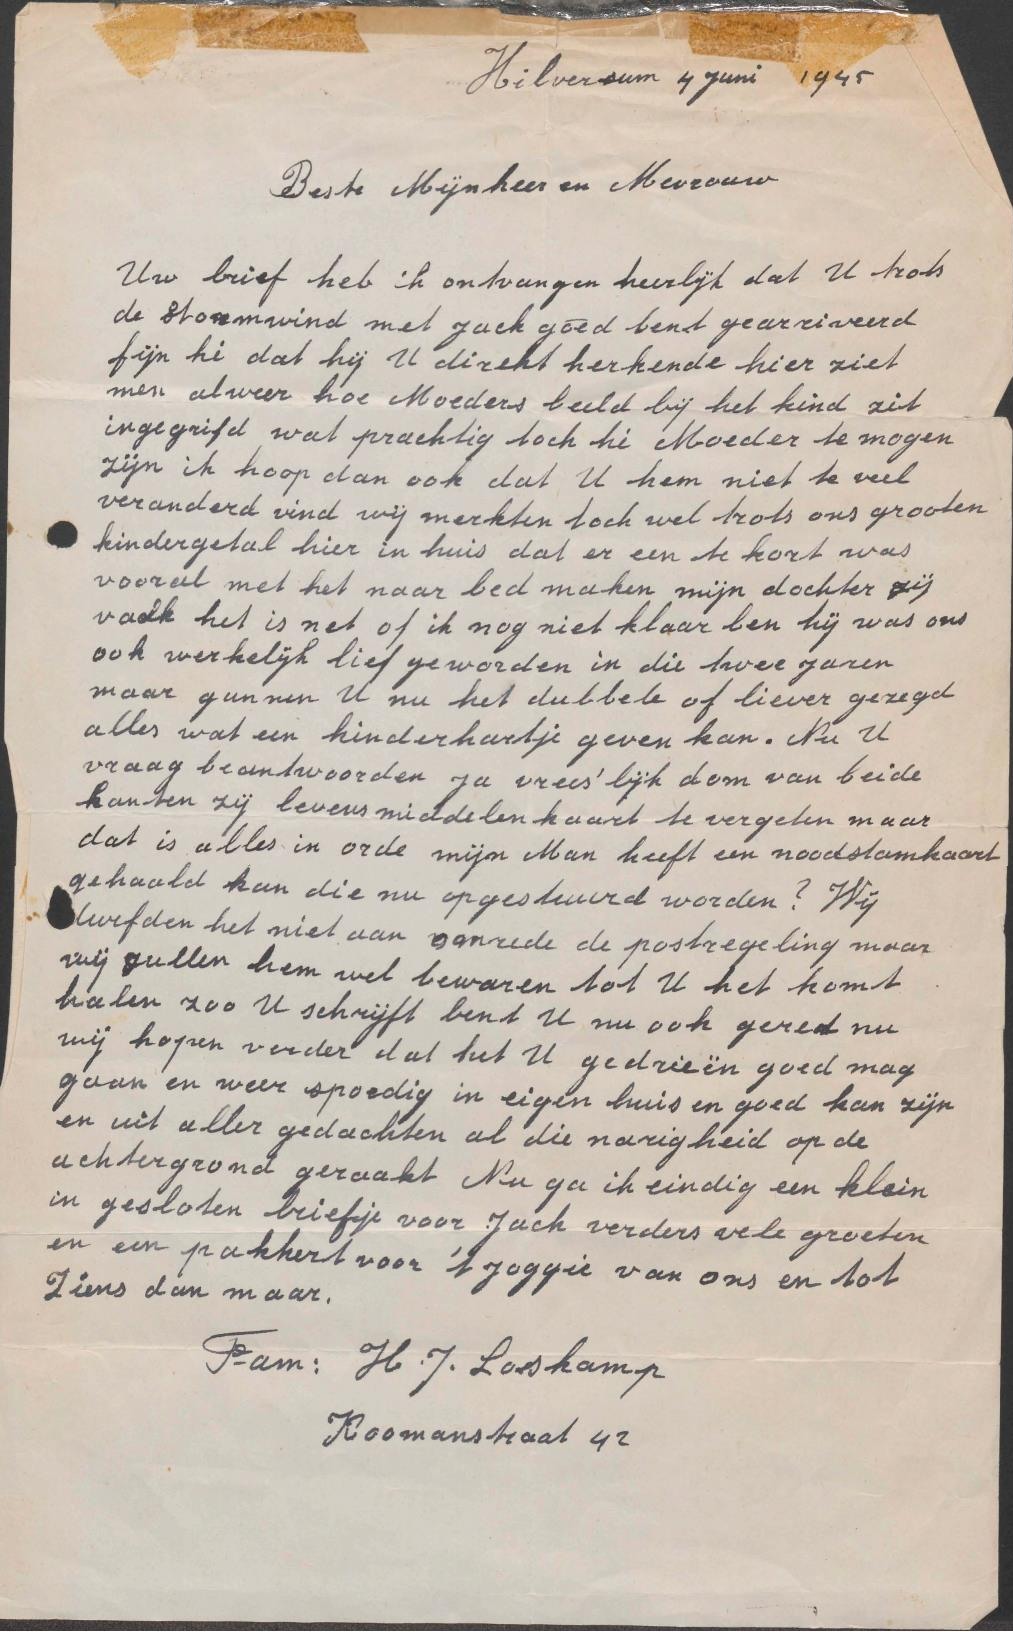 Hilversum 4 Juni 1945
Beste Mijnheer en Mevrouw
Uw brief heb ik ontvangen heerlijk dat U trots
de stormwind met Jack goed bent gearriveerd
fijn hè dat hij U direkt herkende hier ziet
men alweer hoe Moeders beeld bij het kind zit
ingegrifd wat prachtig toch hè Moeder te mogen
zijn ik hoop dan ook dat U hem niet te veel
veranderd vind wij merkten toch wel trots ons grooten
kindergetal hier in huis dat er een te kort was
vooral met het naar bed maken mijn dochter zij
vaak het is net of ik nog niet klaar ben hij was ons
ook werkelijk lief geworden in die twee jaren
maar gunnen U nu het dubbele of liever gezegd
alles wat een kinderhartje geven kan. Nu U
vraag beantwoorden ja vrees'lijk dom van beide
kanten zij levensmiddelenkaart te vergeten maar
dat is alles in orde mijn Man heeft een noodstamkaart
gehaald kan die nu opgestuurd worden? Wij
durfden het niet aan omrede de postregeling maar
wij zullen hem wel bewaren tot U het komt
halen zoo U schrijft bent U nu ook gered nu
wij hopen verder dat het U gedrieën goed mag
gaan en weer spoedig in eigen huis en goed kan zijn
en uit aller gedachten al die narigheid op de
achtergrond geraakt Nu ga ik eindig een klein
in gesloten briefje voor Jack verders vele groeten
en een pakkert voor 't Joggie van ons en tot
Ziens dan maar.
Fam: H. J. Loskamp
Koomanstraat 42